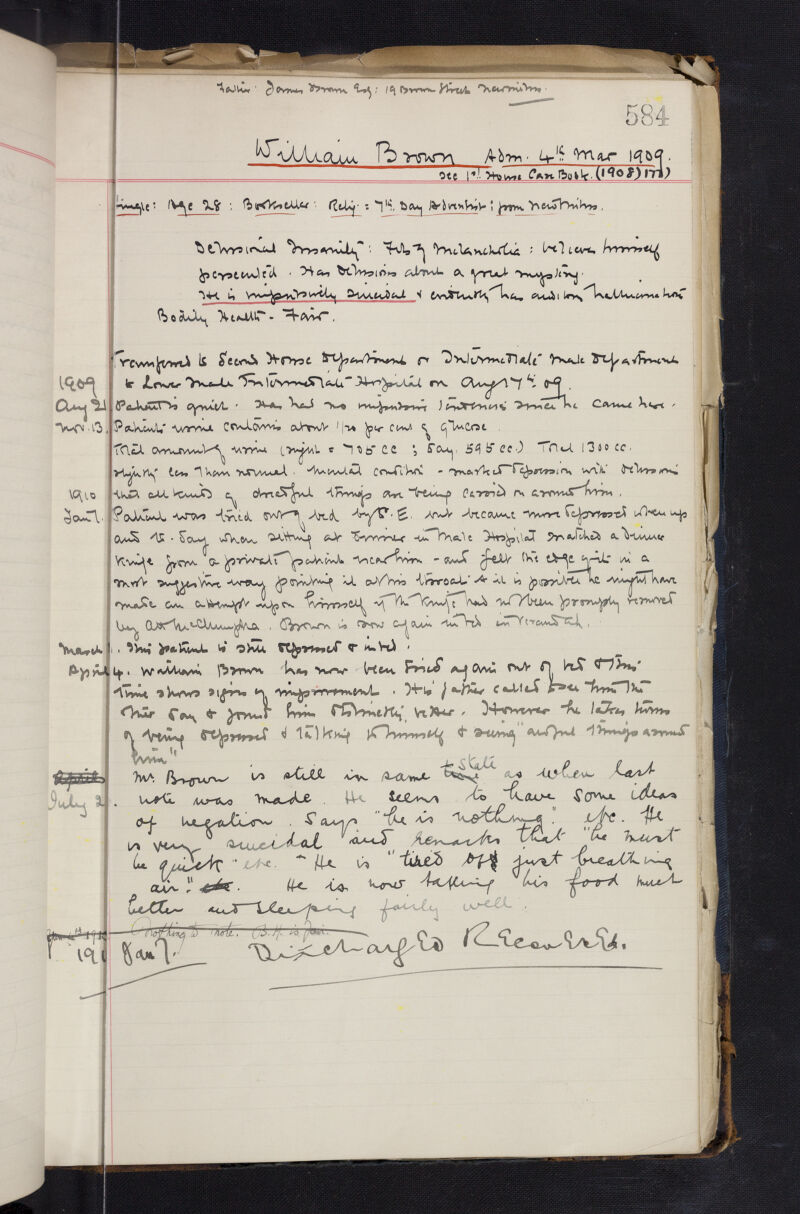 Father: James Brown Esq: 19 Brown Street Newmilns.
584
William Brown Adm. 4th Mar 1909.
see 1st House Case Book. (1908) 170)
Single: Age 28: Bookseller: Relig: 7th Day Adventist: from Newmilns.
Delusional Insanity: Fits of Melancholia: believes himself
persecuted. Has delusions about a great mystery.
He is impulsively suicidal & evidently has auditory hallucinations
Bodily Health - Fair.
Transferred to Second House Department or Intermediate male department
1909 to Lower Male Intermediate Hospital on Aug 17th 09.
Aug 21 Patient is quiet. Has had no impulsive tendencies since he came here.
Nov. 13. Patients urine contains about 1/20 per cent of glucose.
Total amount of urine (night = 705 cc; day. 595 cc.) Total 1300 cc.
slightly less than normal. Mental condition - marked depression with delusions
1910 that all kinds of dreadful things are being carried on around him.
Jan 7. Patient was tried out of bed by E. but became more depressed when up
and to-day when sitting at dinner in Male Hospital snatched a dinner
knife from a private patient near him - and felt the edge of it in a
most suggestive way pointing it at his throat & it is possible he might have
made an attempt upon himself if the knife had not been promptly removed
by Att. Brown is now again in bed in verandah.
March 1. This patient is still depressed & in bed.
April 4. William Brown has now been tried again out of bed & this
time shows signs of improvement. His father called to see him the
other day & found him distinctly better. However he takes turns
of being depressed & talking to himself & seeing "awful things around
him"
April Mr Brown is still in same state as when last
July 2. note was made. He seems to have some ideas
of negation. Says "he is nothing" etc. He
is very suicidal and remarks that "he must
be quick" etc. "He is "tired of just breathing
air." etc. He is now taking his food much
better and sleeping fairly well.
Nothing to note. B.H. is fair.
191 Jan 7. Discharged Recovered.